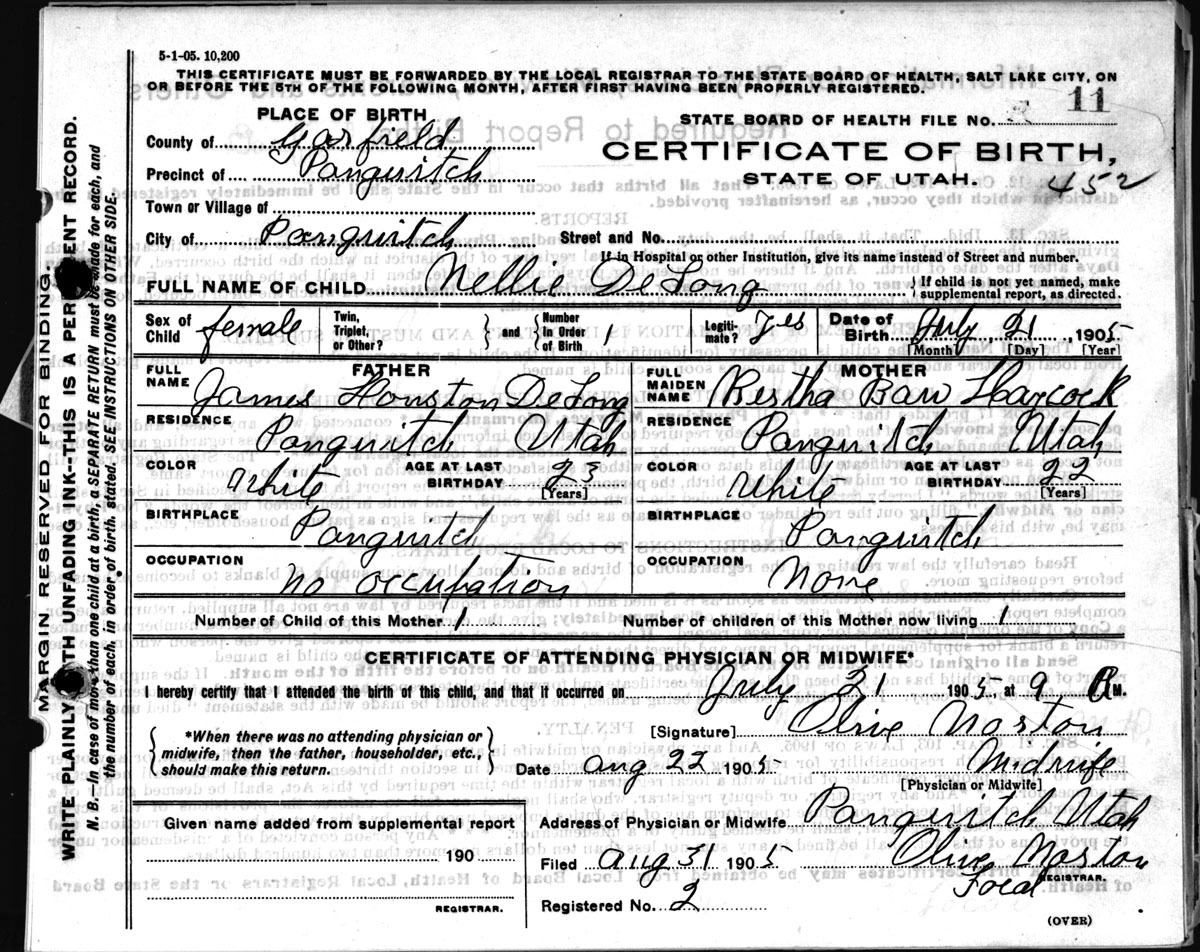 5-1-05. 10,200
THIS CERTIFICATE MUST BE FORWARDED BY THE LOCAL REGISTRAR TO THE STATE BOARD OF HEALTH, SALT LAKE CITY, ON
OR BEFORE THE 5TH OF THE FOLLOWING MONTH, AFTER FIRST HAVING BEEN PROPERLY REGISTERED.
11
PLACE OF BIRTH
STATE BOARD OF HEALTH FILE NO.
County of Garfield
CERTIFICATE OF BIRTH,
Precinct of Panguitch
STATE OF UTAH.
452
Town or Village of
City of Panguitch Street and No.
If in Hospital or other Institution, give its name instead of Street and number.
FULL NAME OF CHILD Nellie DeLong { If child is not yet named, make supplemental report, as directed.
Sex of Child female Twin, Triplet, or Other? } and { Number in Order of Birth 1 Legiti-mate? Yes Date of Birth July 21, 1905
[Month] [Day] [Year]
FATHER MOTHER
FULL NAME James Houston DeLong FULL MAIDEN NAME Bertha Hancock
RESIDENCE Panguitch Utah RESIDENCE Panguitch Utah
COLOR White AGE AT LAST BIRTHDAY 23 [Years] COLOR White AGE AT LAST BIRTHDAY 22 [Years]
BIRTHPLACE Panguitch BIRTHPLACE Panguitch
OCCUPATION No occupation OCCUPATION None
Number of Child of this Mother 1 Number of children of this Mother now living 1
CERTIFICATE OF ATTENDING PHYSICIAN OR MIDWIFE*
I hereby certify that I attended the birth of this child, and that it occurred on July 21 1905, at 9 M.
{ *When there was no attending physician or midwife, then the father, householder, etc., should make this return. }
[Signature] Olive Norton
Date Aug 22 1905 Midwife
[Physician or Midwife]
Given name added from supplemental report
Address of Physician or Midwife Panguitch Utah
190
Filed Aug 31 1905 Olive Norton
Local REGISTRAR.
REGISTRAR.
Registered No. 2
(OVER)
MARGIN RESERVED FOR BINDING.
WRITE PLAINLY WITH UNFADING INK--THIS IS A PERMANENT RECORD.
N. B.—In case of more than one child at a birth, a SEPARATE RETURN must be made for each, and
the number of each, in order of birth, stated. SEE INSTRUCTIONS ON OTHER SIDE.